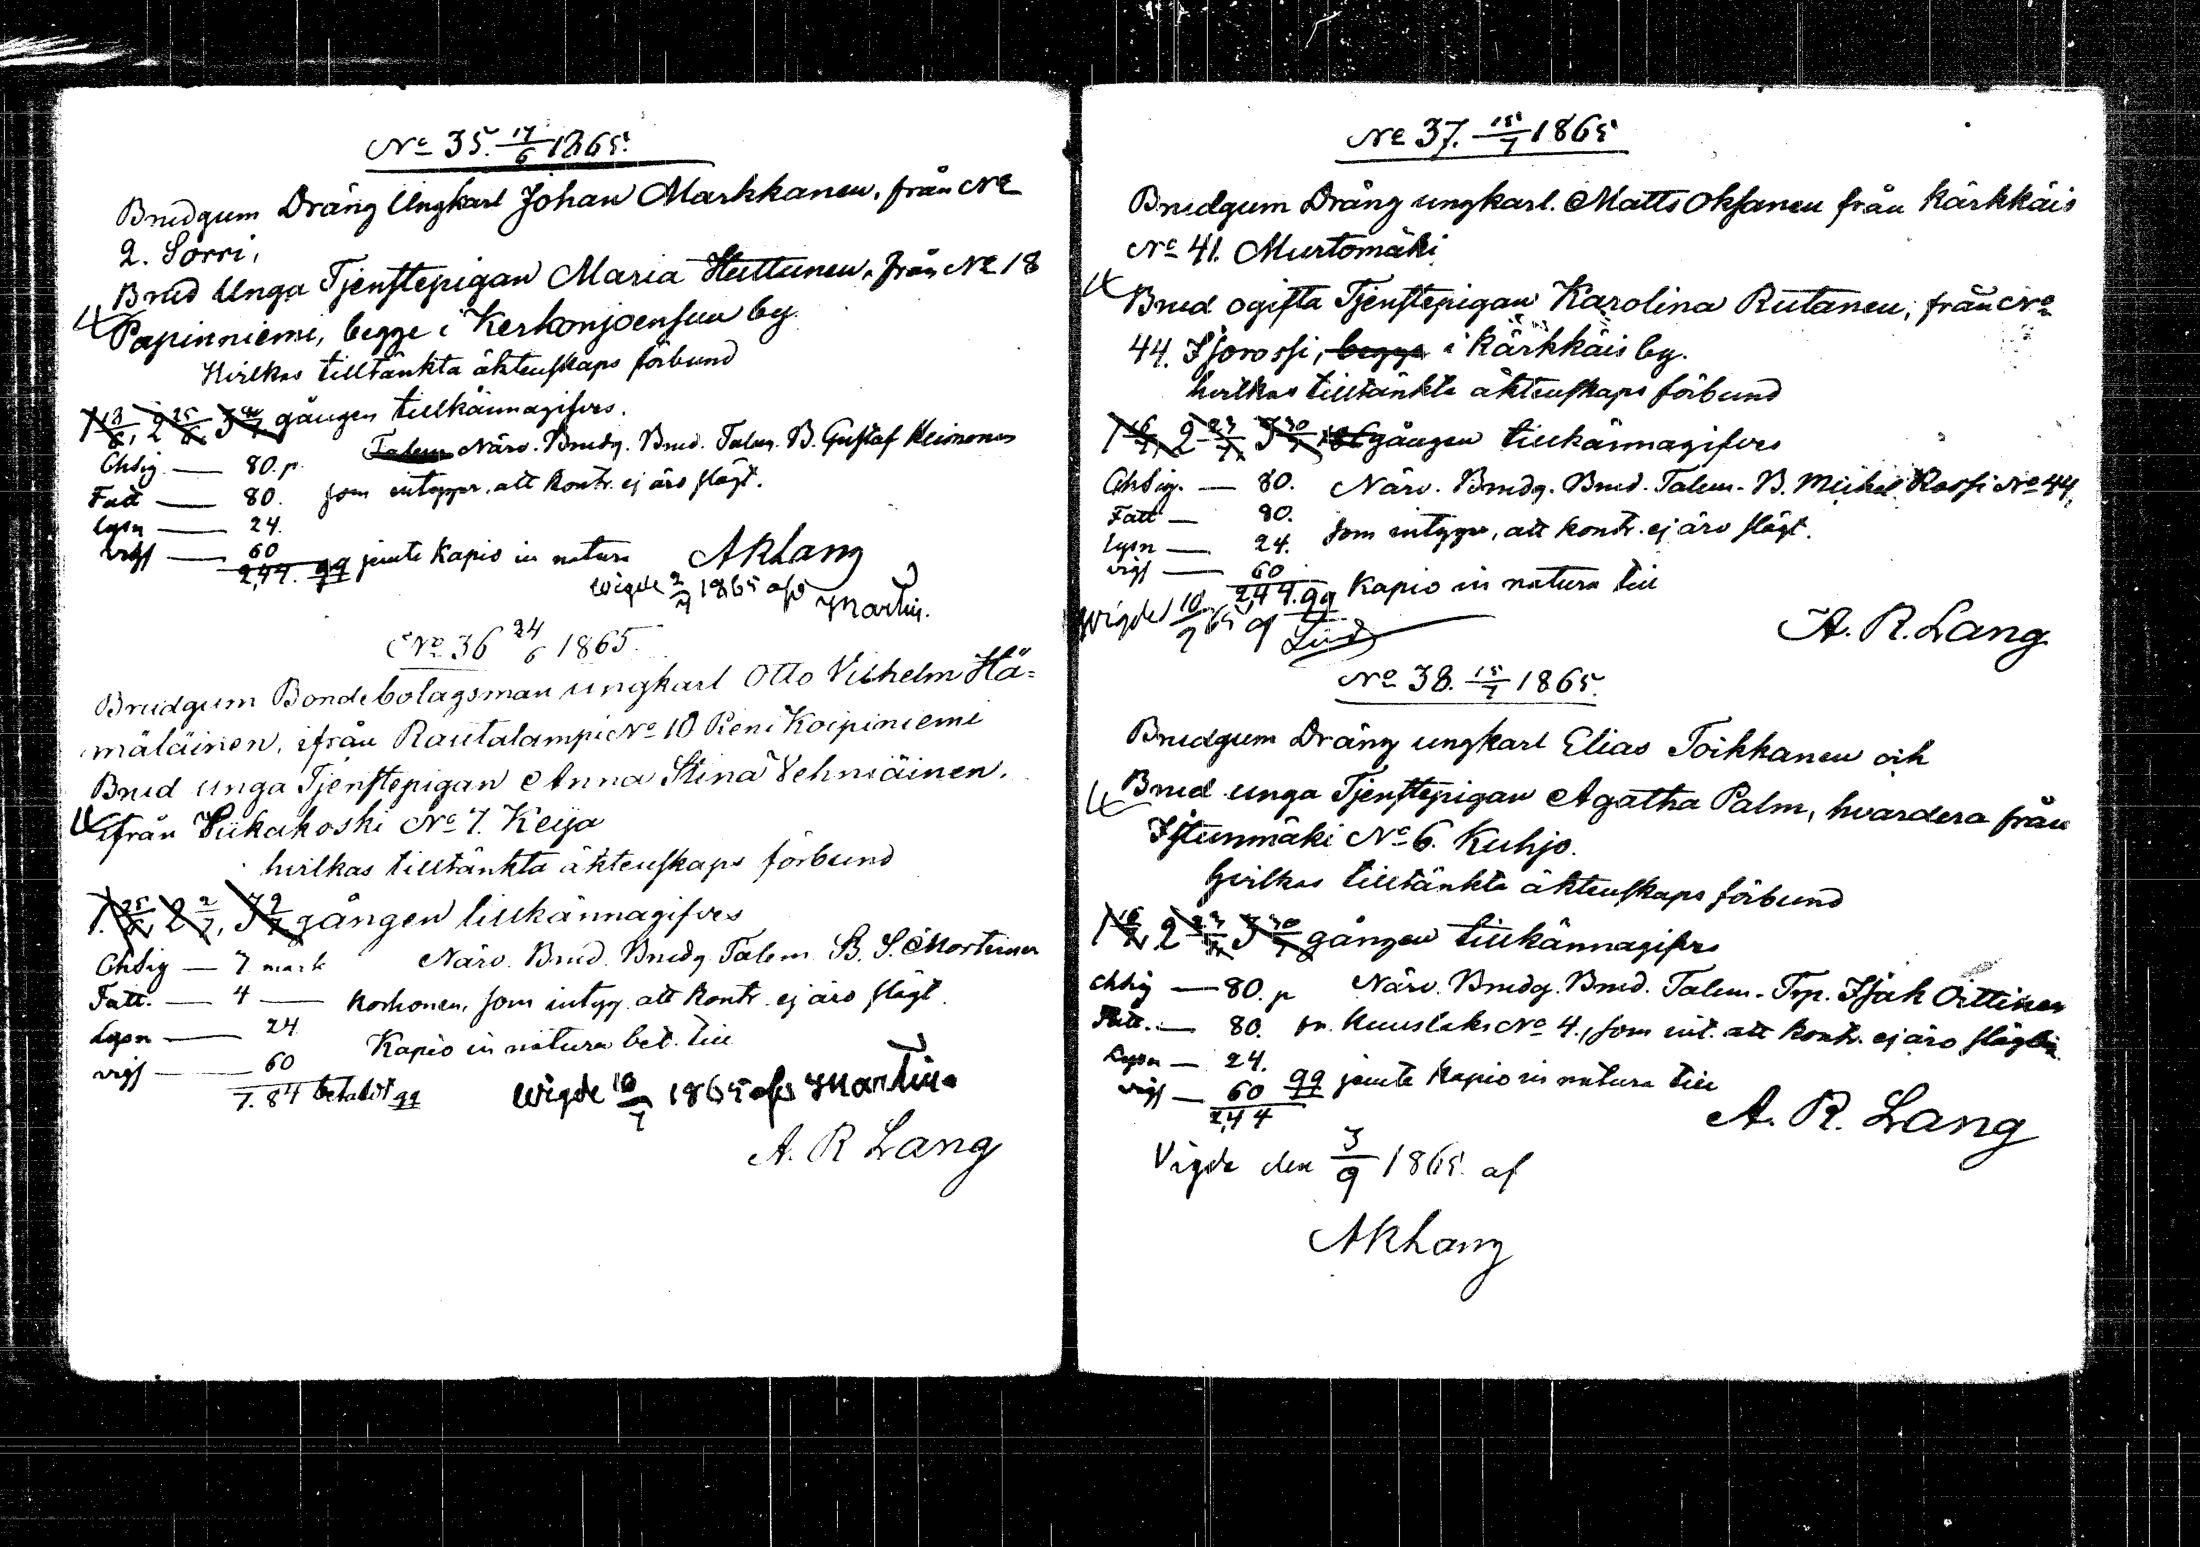 No 35. 17/6 1865.
Brudgum Dräng Ungkarl Johan Markkanen, från No
2. Sorri,
Brud Unga Tjenstepigan Maria Huttunen, från No 18
Papinniemi, begge i Kerkonjoensuu by.
Hvilkas tilltänkta äktenskaps förbund
1 18/6, 2 25/6, 3 gången tillkännagifves.
Talem Närv. Brudg. Brud. Talem. B. Gustaf Heimonen
Chsig — 80. p.
som intygar, att kontr. ej äro slägt.
Fatt — 80.
Lysn — 24.
vigs — 60
2,44. jemte Kapio in natura
AR Lang
wigde 2/7 1865 af
Martin.
No 36 24/6 1865.
Brudgum Bondebolagsman ungkarl Otto Vilhelm Hä=
mäläinen, ifrån Rautalampi No 10 Koipiniemi
Brud unga Tjenstepigan Anna Stina Vehniäinen.
ifrån Siikakoski No 7. Keijo
hvilkas tilltänkta äktenskaps förbund
1. 25/6, 2 2/7, 3 9/7 gången tillkännagifves
Chsig — 7 mark
Närv. Brud. Brudg. Talem. B. S. Mortiner
Fatt. — 4 —
Korhonen, som intyg. att kontr. ej äro slägt.
Lysn — 24
Kapio in natura bet. till
vigs — 60
7. 84 betaldt
wigde 10/7 1865 af Martin.
A. R Lang
No 37. 15/7 1865
Brudgum Dräng ungkarl. Matts Oksanen från Kärkkäis
No 41. Murtomäki
Brud ogifta Tjenstepigan Karolina Rutanen, från No
44. Isorossi, begge i Kärkkäis by.
hvilkas tilltänkta äktenskaps förbund
1 16/7, 2 23/7, 3 30/7 gången tillkännagifves
Chsig. — 80. Närv. Brudg. Brud. Talem. B. Michel Rossi No 44,
Fatt — 80.
som intygar, att kontr. ej äro slägt.
Lysn — 24.
vigs — 60
2,44. Kapio in natura till
A. R. Lang
No 38. 15/7 1865.
Brudgum Dräng ungkarl Elias Toikkanen och
Brud unga Tjenstepigan Agatha Palm, hvardera från
Istunmäki No 6. Kuhjo.
Hvilkas tilltänkta äktenskaps förbund
1 16/7, 2 23/7, 3 30/7 gången tillkännagifvs
Chsig — 80. p
Närv. Brudg. Brud. Talem. Trp. Isak Oittinen
Fatt. — 80. fr. Kuuslaks No 4, som int. att kontr. ej äro slägtin
Lysn — 24.
vigs — 60 jemte Kapio in natura till
2,44
A. R. Lang
Vigde den 3/9 1865. af
AR Lang